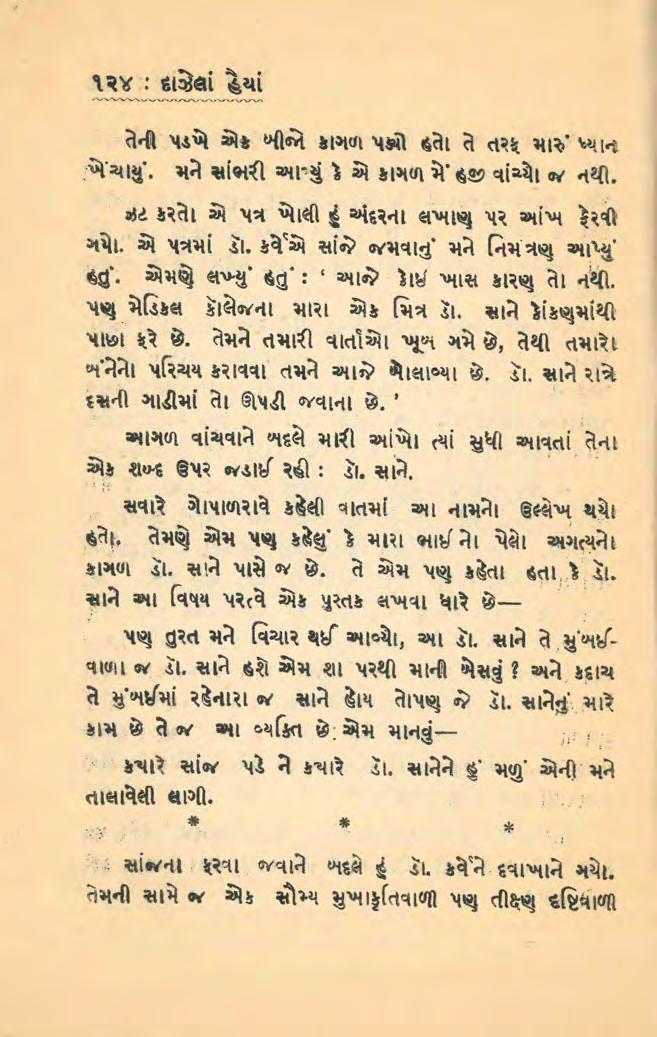 ૧૨૪ : દાઝેલાં હૈયાં
તેની પડખે એક બીજો કાગળ પડ્યો હતો તે તરફ મારું ધ્યાન
ખેંચાયું. મને સાંભરી આવ્યું કે એ કાગળ મેં હજી વાંચ્યો જ નથી.
ઝટ કરતો એ પત્ર ખોલી હું અંદરના લખાણ પર આંખ ફેરવી
ગયો. એ પત્રમાં ડૉ. કર્વેએ સાંજે જમવાનું મને નિમંત્રણ આપ્યું
હતું. એમણે લખ્યું હતું : ‘ આજે કોઈ ખાસ કારણ તો નથી.
પણ મેડિકલ કૉલેજના મારા એક મિત્ર ડૉ. સાને કોંકણમાંથી
પાછા ફરે છે. તેમને તમારી વાર્તાઓ ખૂબ ગમે છે, તેથી તમારો
બંનેનો પરિચય કરાવવા તમને આજે બોલાવ્યા છે. ડૉ. સાને રાત્રે
દસની ગાડીમાં તો ઊપડી જવાના છે. ’
આગળ વાંચવાને બદલે મારી આંખો ત્યાં સુધી આવતાં તેના
એક શબ્દ ઉપર જડાઈ રહી : ડૉ. સાને.
સવારે ગોપાળરાવે કહેલી વાતમાં આ નામનો ઉલ્લેખ થયો
હતો. તેમણે એમ પણ કહેલું કે મારા ભાઈનો પેલો અગત્યનો
કાગળ ડૉ. સાને પાસે જ છે. તે એમ પણ કહેતા હતા કે ડૉ.
સાને આ વિષય પરત્વે એક પુસ્તક લખવા ધારે છે—
પણ તુરત મને વિચાર થઈ આવ્યો, આ ડૉ. સાને તે મુંબઈ-
વાળા જ ડૉ. સાને હશે એમ શા પરથી માની બેસવું ? અને કદાચ
તે મુંબઈમાં રહેનારા જ સાને હોય તોપણ જે ડૉ. સાનેનું મારે
કામ છે તે જ આ વ્યક્તિ છે એમ માનવું—
ક્યારે સાંજ પડે ને ક્યારે ડૉ. સાનેને હું મળું એની મને
તાલાવેલી લાગી.
* * *
સાંજના ફરવા જવાને બદલે હું ડૉ. કર્વેને દવાખાને ગયો.
તેમની સામે જ એક સૌમ્ય મુખાકૃતિવાળી પણ તીક્ષ્ણ દૃષ્ટિવાળી